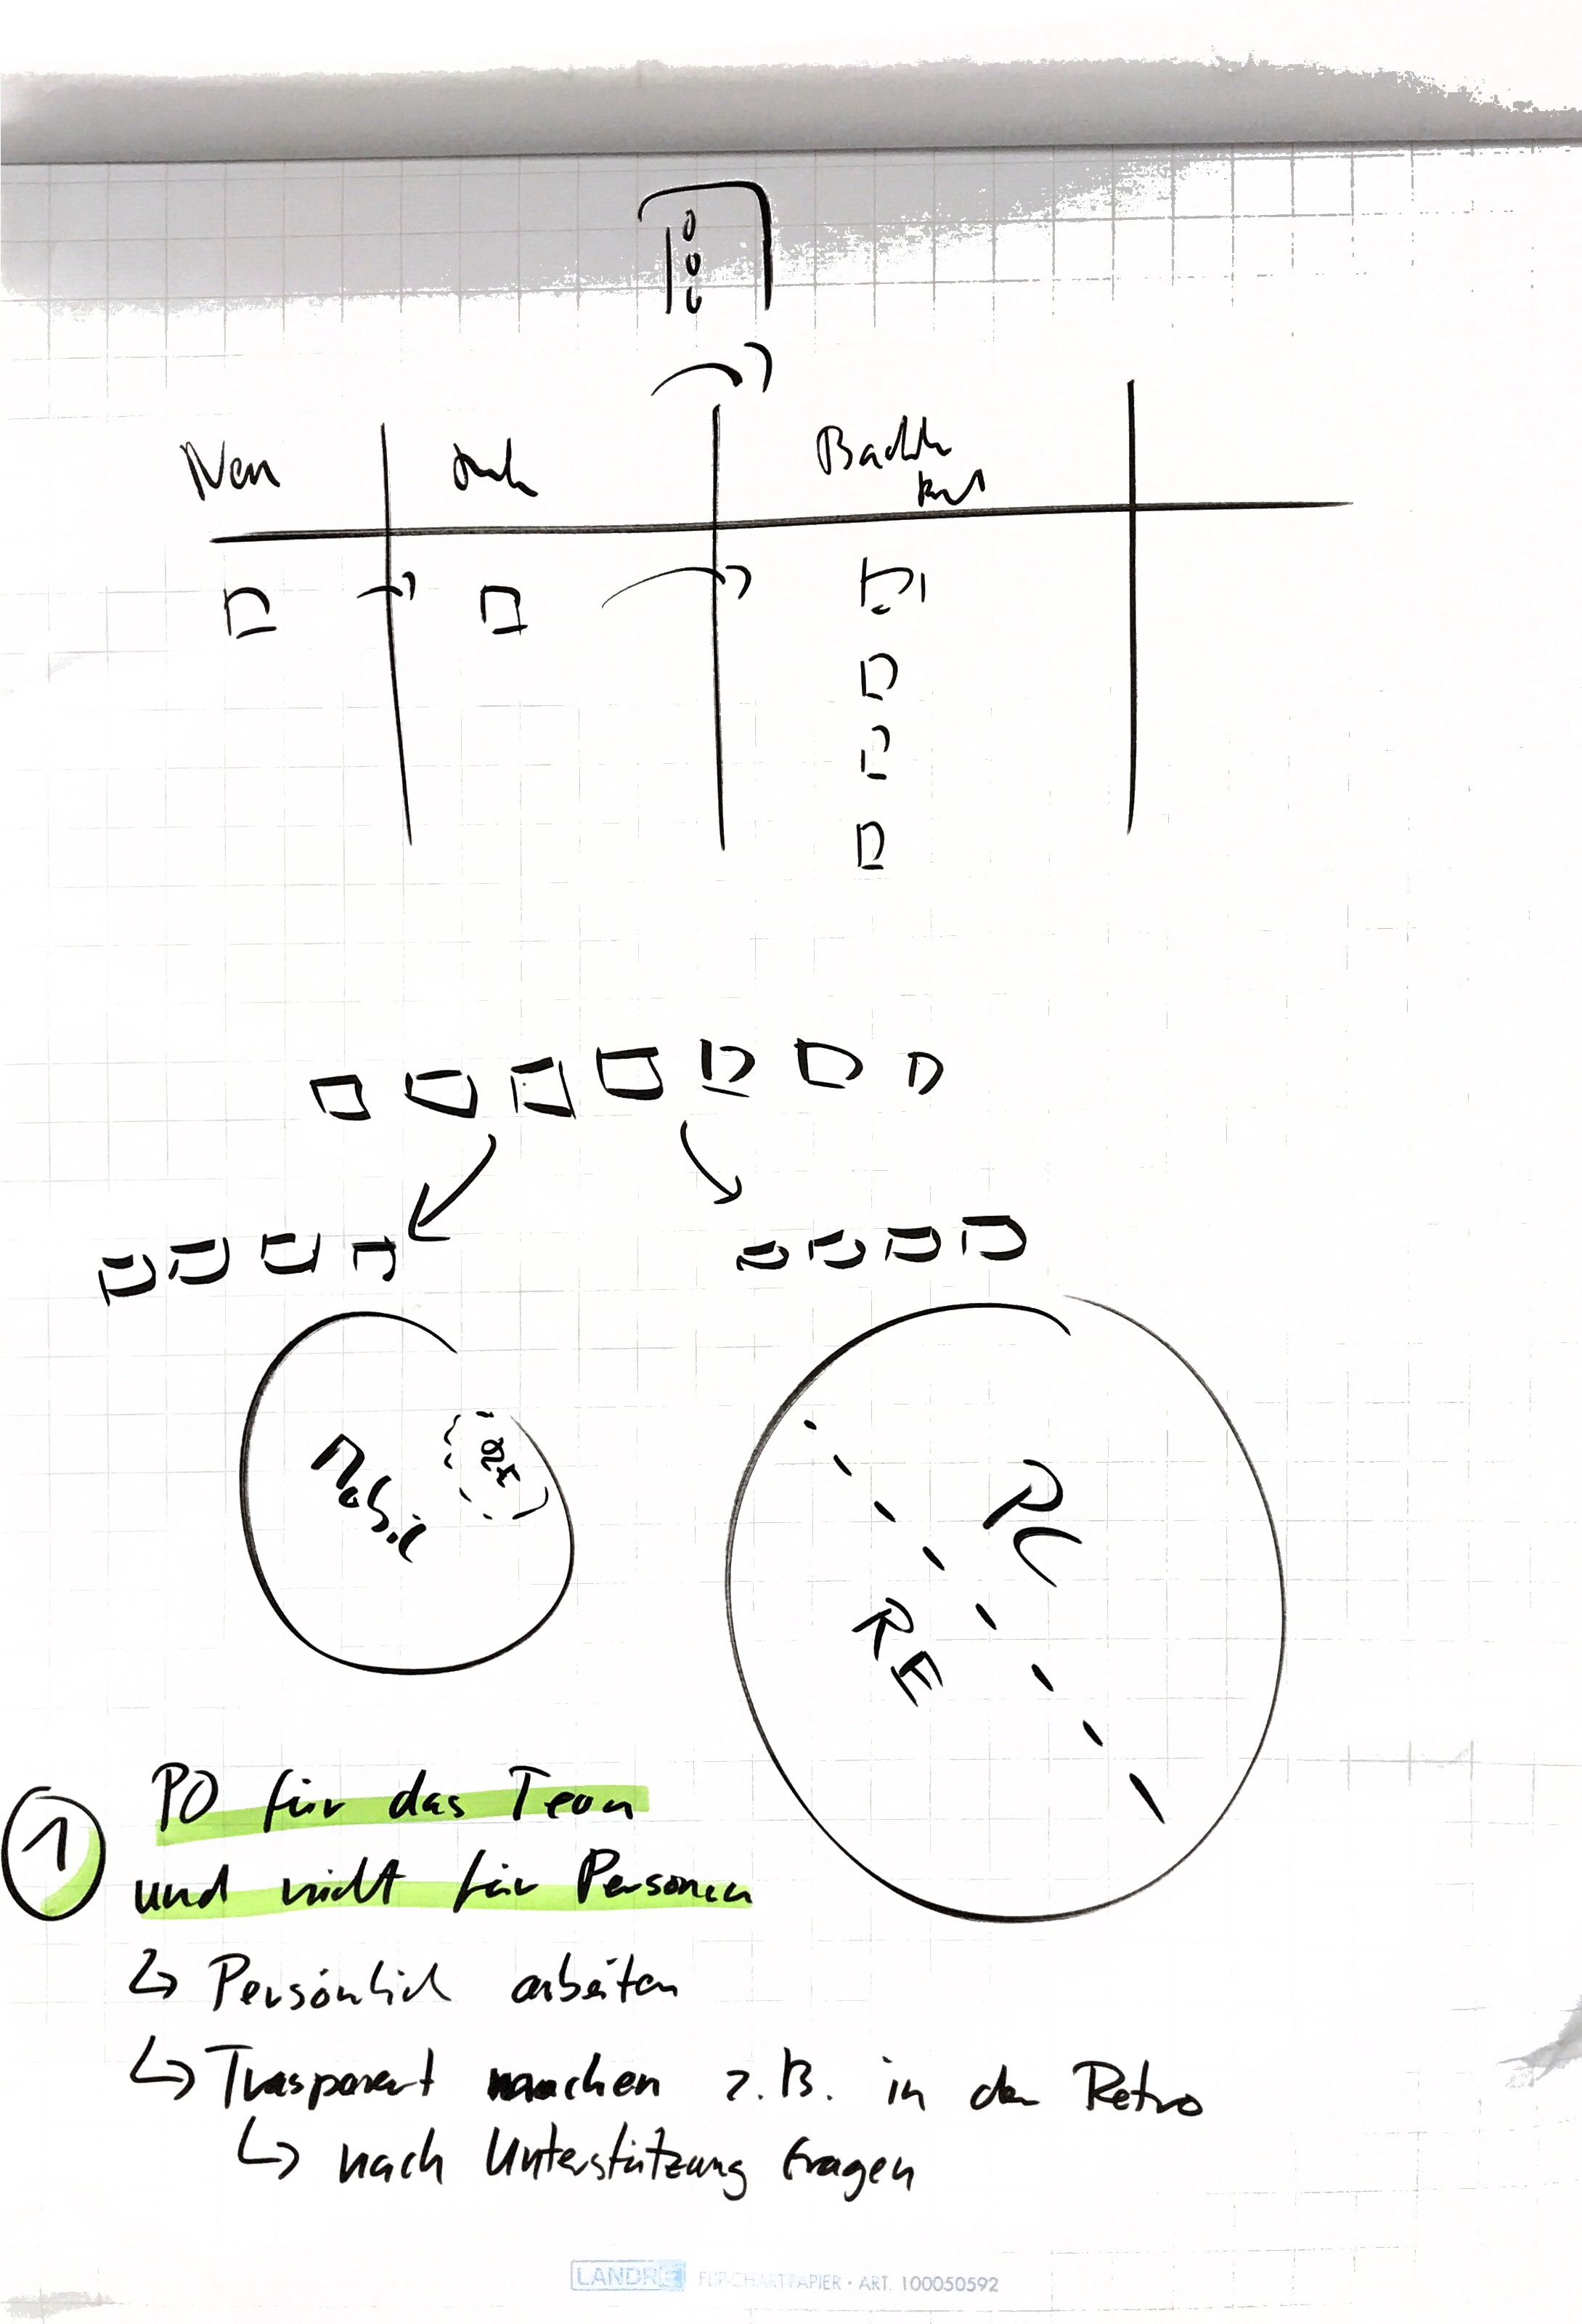 Neu
PC
RE
1
PO für das Team
und nicht für Personen
↳ Persönlich arbeiten
↳ Trasparent machen z.B. in der Retro
↳ nach Unterstützung fragen
LANDRE FLIP-CHARTPAPIER • ART. 100050592